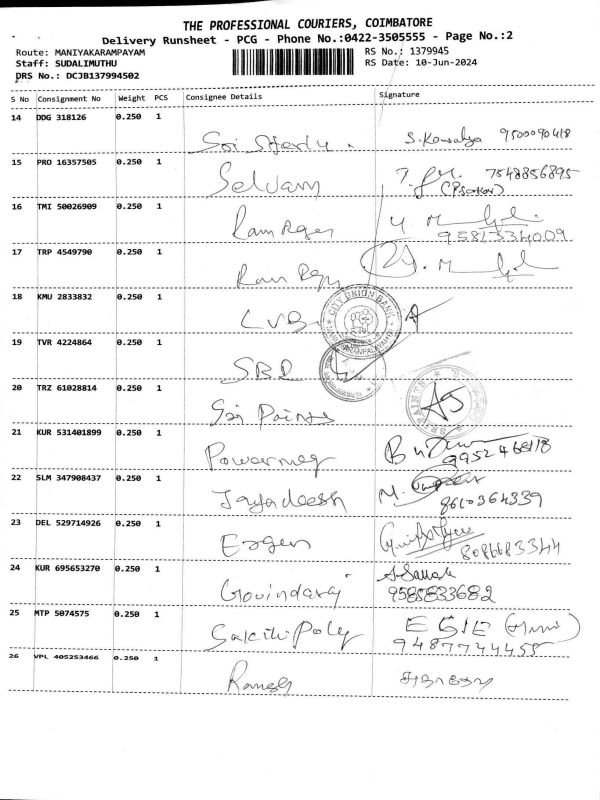 THE PROFESSIONAL COURIERS, COIMBATORE
Delivery Runsheet - PCG - Phone No.:0422-3505555 - Page No.:2
Route: MANIYAKARAMPAYAM RS No.: 1379945
Staff: SUDALIMUTHU RS Date: 10-Jun-2024
DRS No.: DCJB137994502
S No Consignment No Weight PCS Consignee Details Signature
14 DDG 318126 0.250 1
S. Kowsalya 9500090418
15 PRO 16357505 0.250 1
Selvam 7548856895
16 TMI 50026909 0.250 1
9581334009
17 TRP 4549790 0.250 1
18 KMU 2833832 0.250 1
LVB CITY UNION BANK
19 TVR 4224864 0.250 1
20 TRZ 61028814 0.250 1
Sri Paints
21 KUR 531401899 0.250 1
22 SLM 347908437 0.250 1
Jayadeesh 8610364339
23 DEL 529714926 0.250 1
8086683344
24 KUR 695653270 0.250 1
Govindaraj 9585833682
25 MTP 5074575 0.250 1
Sakithi Poly
9487744455
26 VPL 405253466 0.250 1
Ramesh